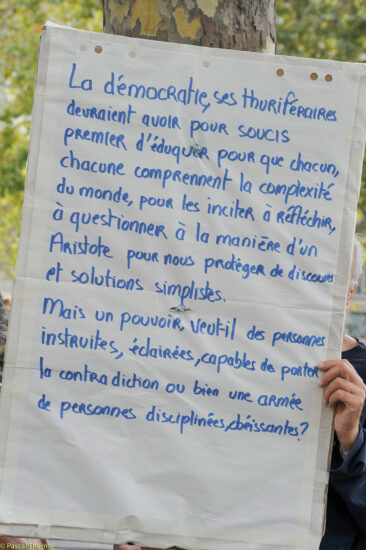 La démocratie, ses thuriféraires
devraient avoir pour soucis
premier d'éduquer pour que chacun,
chacune comprennent la complexité
du monde, pour les inciter à réfléchir,
à questionner à la manière d'un
Aristote pour nous protéger de discours
et solutions simplistes.
Mais un pouvoir, veutil des personnes
instruites, éclairées, capables de porter
la contradiction ou bien une armée
de personnes disciplinées, obéissantes?
© Pascal